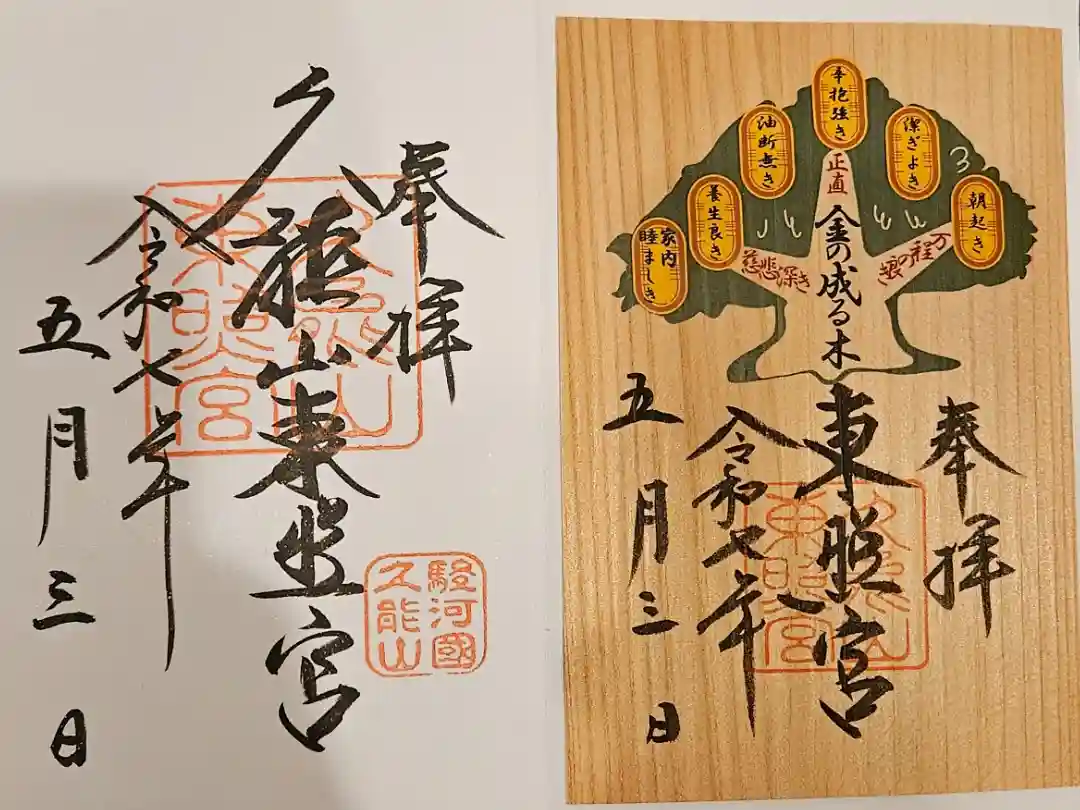 奉拝
久能山東照宮
令和七年
五月三日
久能山
東照宮
駿河國
久能山
辛抱強き
潔ぎよき
朝起き
油断無き
養生良き
家内
睦ましき
正直
万程の良き
慈悲深き
金の成る木
奉拝
東照宮
令和七年
五月三日
久能山
東照宮